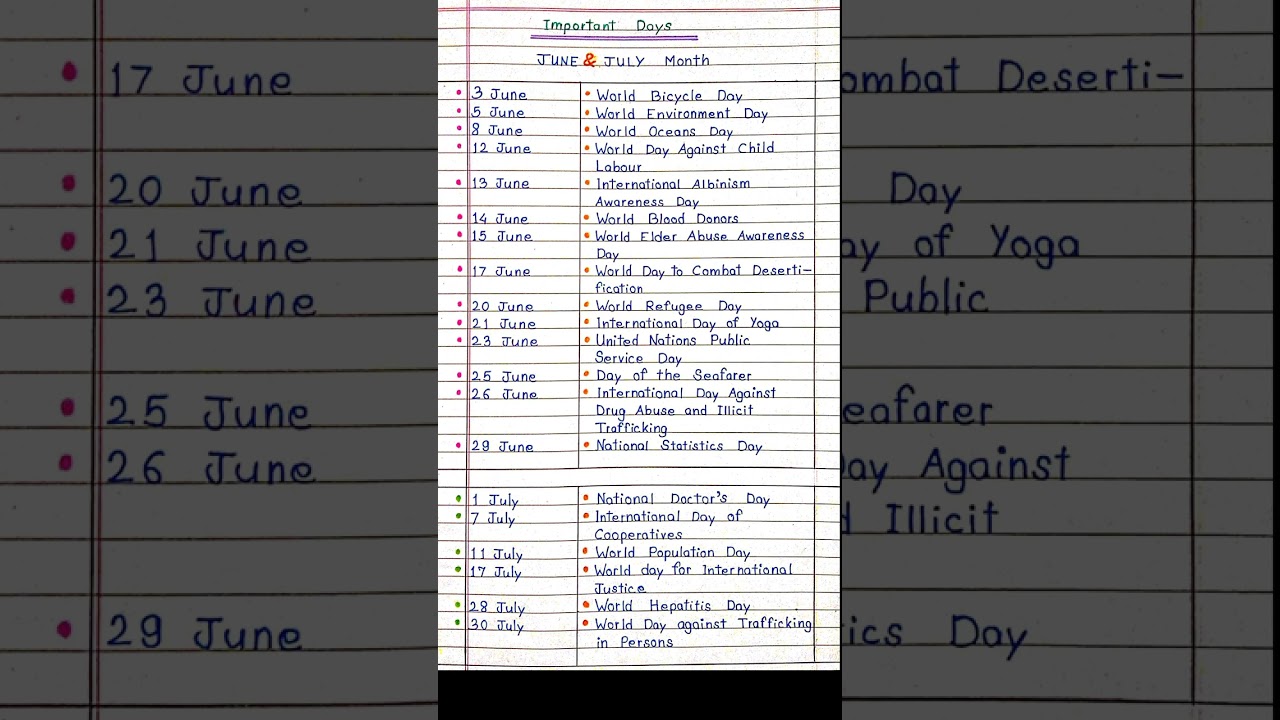 Important Days
JUNE & JULY Month
3 June • World Bicycle Day
5 June • World Environment Day
8 June • World Oceans Day
12 June • World Day Against Child
Labour
13 June • International Albinism
Awareness Day
14 June • World Blood Donors
15 June • World Elder Abuse Awareness
Day
17 June • World Day to Combat Deserti-
fication
20 June • World Refugee Day
21 June • International Day of Yoga
23 June • United Nations Public
Service Day
25 June • Day of the Seafarer
26 June • International Day Against
Drug Abuse and Illicit
Trafficking
29 June • National Statistics Day
1 July • National Doctor's Day
7 July • International Day of
Cooperatives
11 July • World Population Day
17 July • World day for International
Justice
28 July • World Hepatitis Day
30 July • World Day against Trafficking
in Persons
17 June
20 June
21 June
23 June
25 June
26 June
29 June
ombat Deserti-
Day
ay of Yoga
Public
eafarer
ay Against
Illicit
ics Day